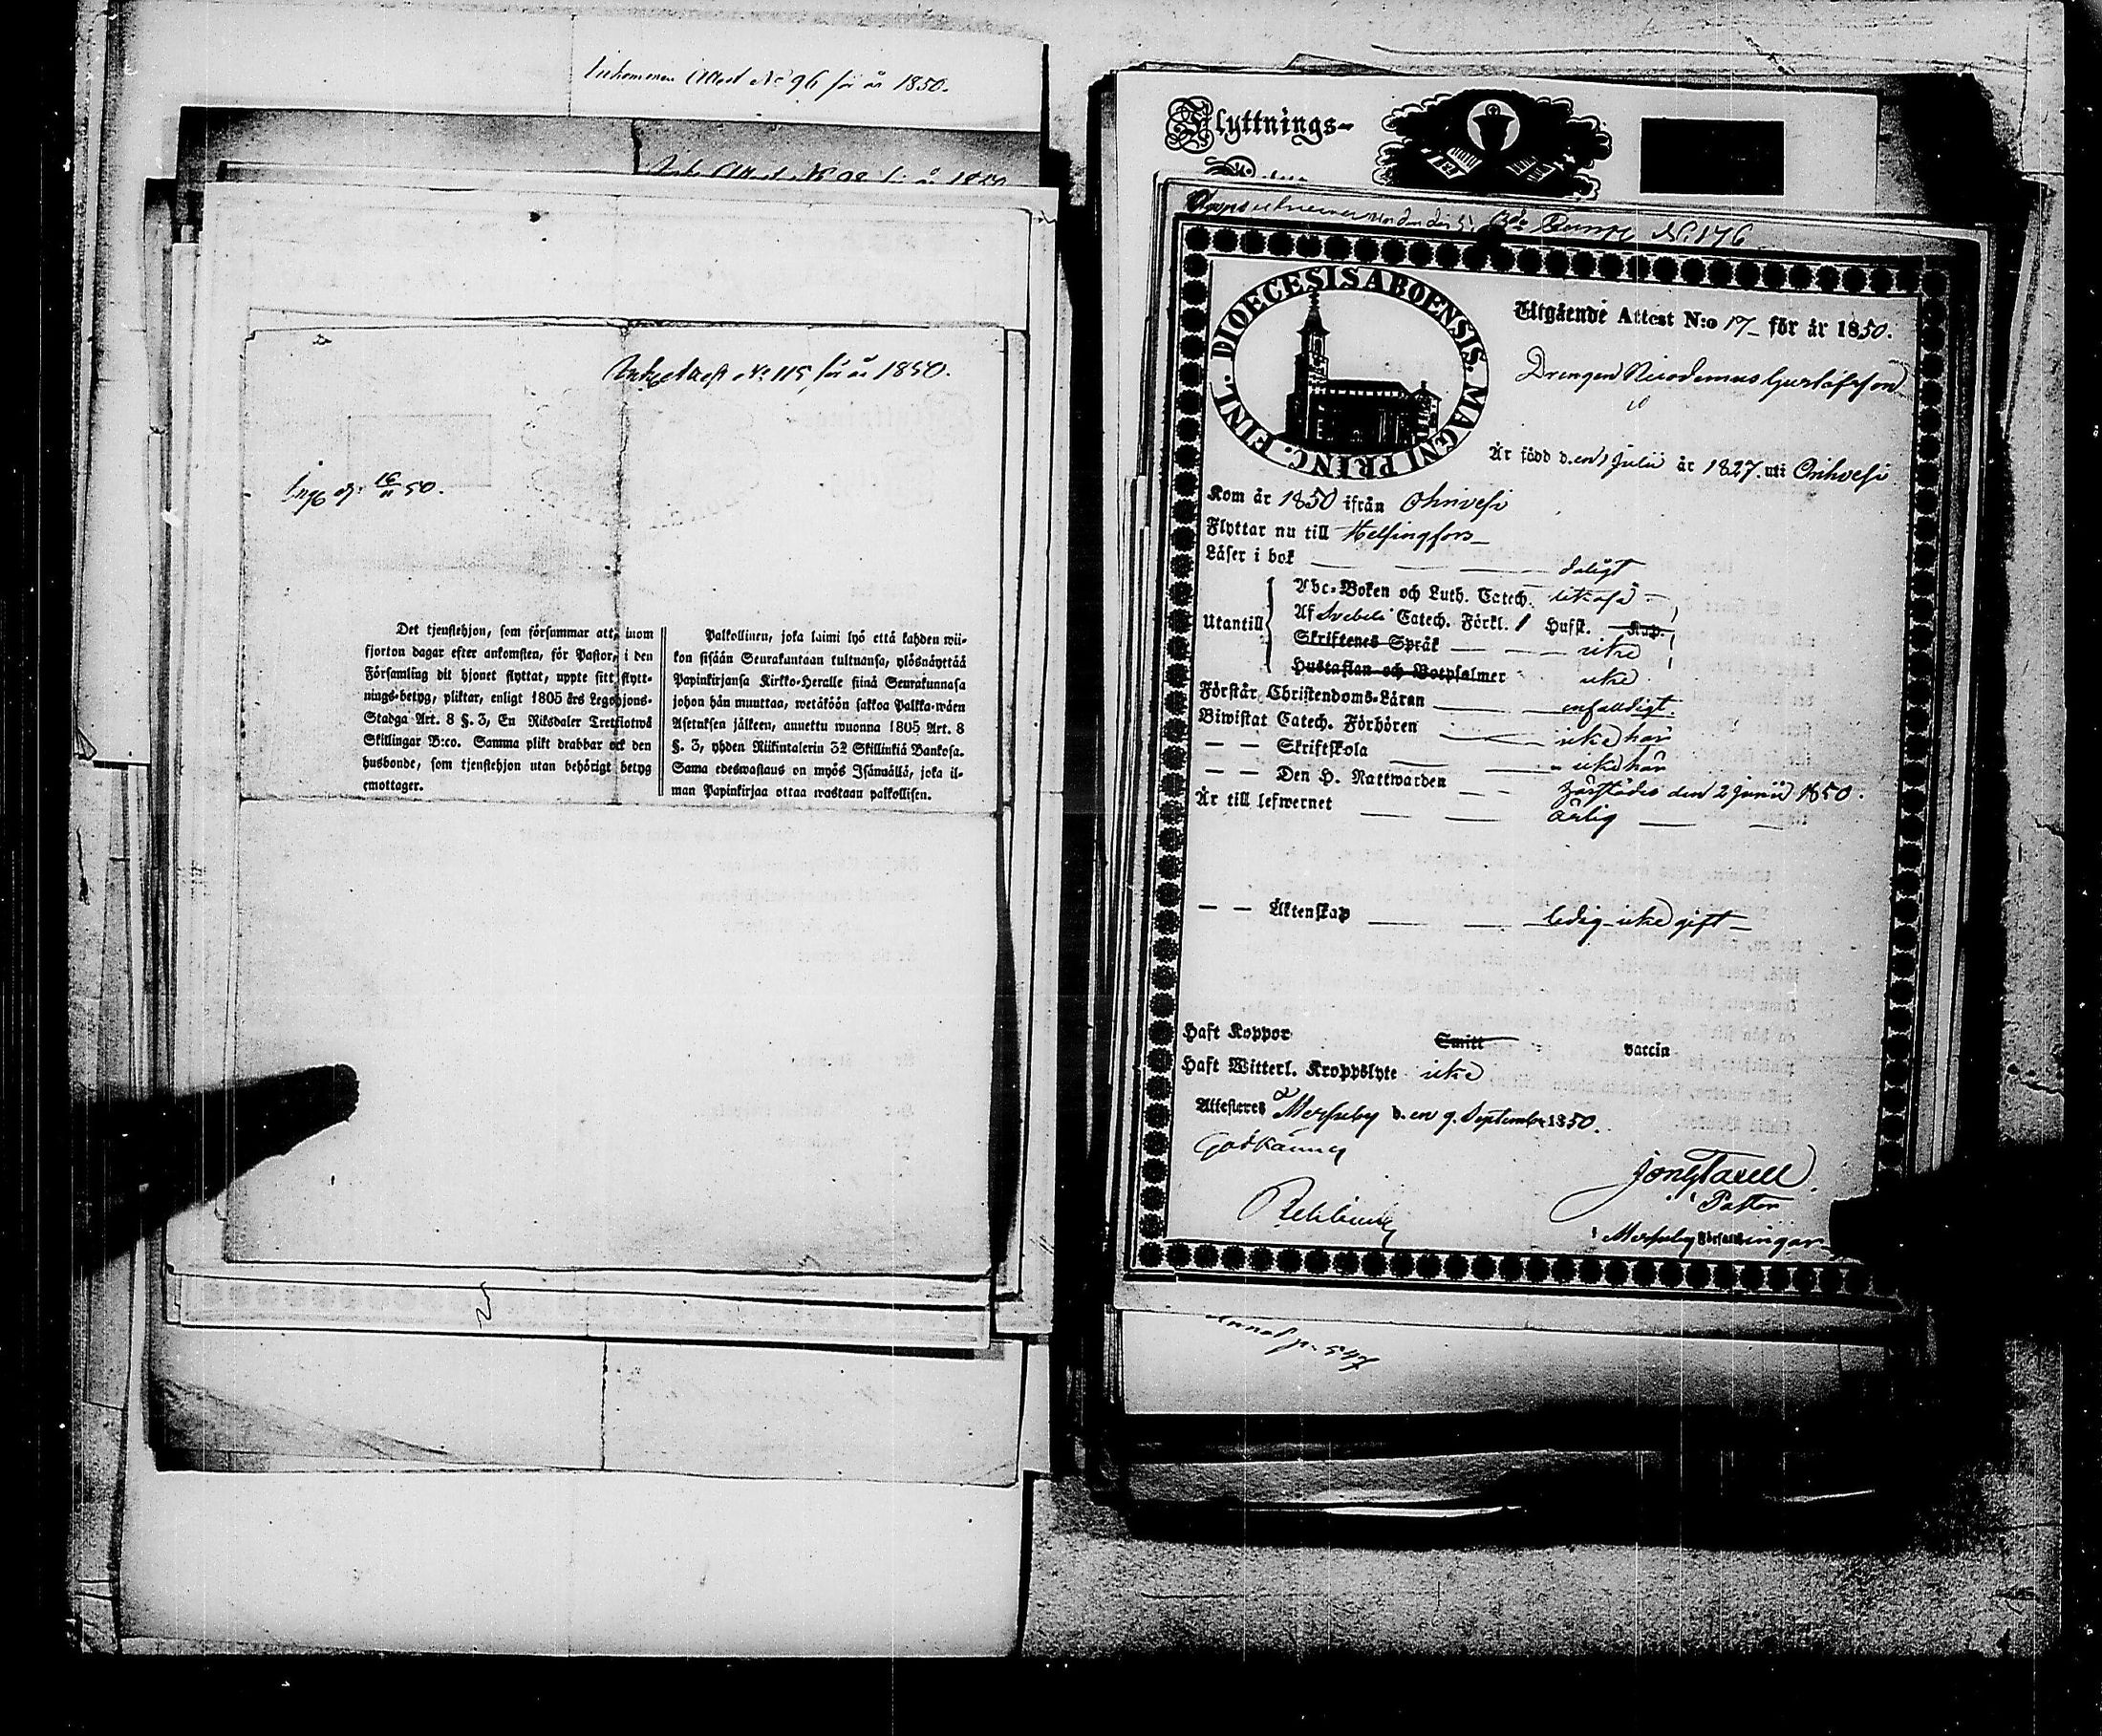 Inkommen Attest No 96 för år 1850.
Ink. Attest No 98 för år 1850
Ink. Attest No 115, för år 1850.
50.
Det tjenstehjon, som försummar att, inom
fjorton dagar efter ankomsten, för Pastor, i den
Församling dit hjonet flyttat, uppte sitt flytt-
nings-betyg, pliktar, enligt 1805 års Legohjons-
Stadga Art. 8 §. 3, En Riksdaler Trettiotwå
Skillingar B:co. Samma plikt drabbar ock den
husbonde, som tjenstehjon utan behörigt betyg
emottager.
Palkollinen, joka laimi lyö että kahden wii-
kon sisään Seurakuntaan tultuansa, ylösnäyttää
Papinkirjansa Kirkko-Heralle siinä Seurakunnasa
johon hän muuttaa, wetäköön sakkoa Palkka-wäen
Asetuksen jälkeen, annettu wuonna 1805 Art. 8
§. 3, yhden Riikintalerin 32 Skillinkiä Bankosa.
Sama edeswastaus on myös Isännällä, joka il-
man Papinkirjaa ottaa wastaan palkollisen.
Flyttnings-
No 176
DIOECESIS ABOENSIS. MAGNI PRINC. FINL.
Utgående Attest N:o 17 för år 1850.
Drengen Nicodemus Gustafsson
Är född d. en 1 Julii år 1827. uti Orihvesi
Kom år 1850 ifrån Orivesi
Flyttar nu till Helsingfors
Läser i bok — daligt
Utantill
Abc-Boken och Luth. Catech. icke
Af Svebelii Catech. Förkl. Husf. Kap.
Skriftenes Språk — icke
Hustaflan och Botpsalmer icke
Förstår Christendoms-Läran — enfaldigt.
Biwistat Catech. Förhören — icke här
— — Skriftskola — icke här
— — Den H. Nattwarden — den 2 Junii 1850.
Är till lefwernet — ärlig —
— — Äktenskap — ledig icke gift —
Haft Koppor Smitt vaccin
Haft Witterl. Kroppslyte icke
Attesteras d. en 9. September 1850.
Pastor
Församlingar